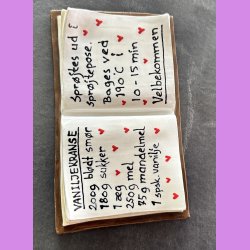 VANILJEKRANSE
200g blødt smør
180g sukker
1 æg
250g mel
75g mandelmel
1 spsk vanilje
Sprøjtes ud i
sprøjtepose.
Bages ved
190°C i
10-15 min
Velbekommen